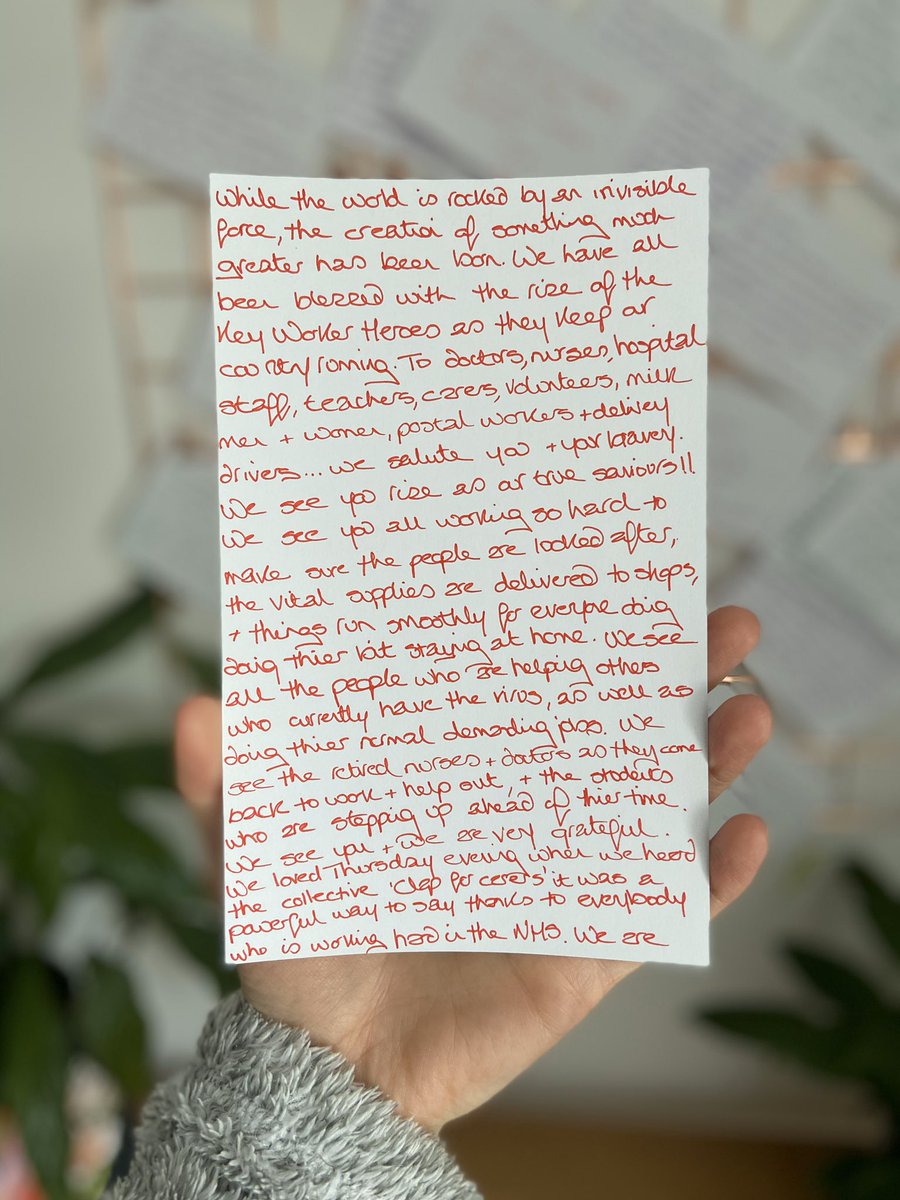 While the world is rocked by an invisible
force, the creation of something much
greater has been born. We have all
been blessed with the rise of the
Key Worker Heroes as they keep our
country running. To doctors, nurses, hospital
staff, teachers, carers, volunteers, milk
men + women, postal workers + delivery
drivers... we salute you + your bravery.
We see you rise as our true saviours!!
We see you all working so hard to
make sure the people are looked after,
the vital supplies are delivered to shops,
+ things run smoothly for everyone doing
doing thier bit staying at home. We see
all the people who are helping others
who currently have the virus, as well as
doing thier normal demanding jobs. We
see the retired nurses + doctors as they come
back to work + help out, + the students
who are stepping up ahead of thier time.
We see you + we are very grateful.
We loved Thursday evening when we heard
the collective 'clap for carers' it was a
powerful way to say thanks to everybody
who is working hard in the NHS. We are